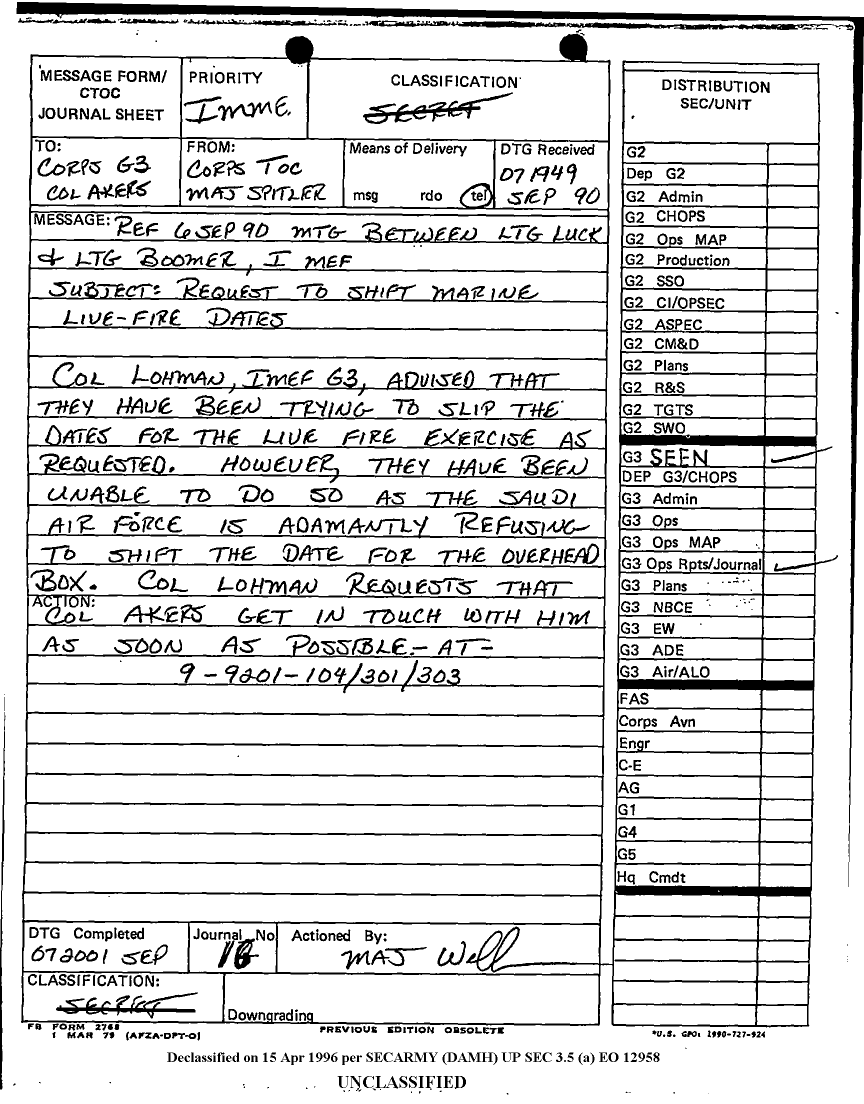 MESSAGE FORM/
CTOC
JOURNAL SHEET
PRIORITY
IMME.
CLASSIFICATION
SECRET
TO:
CORPS G3
COL AKERS
FROM:
CORPS TOC
MAJ SPITLER
Means of Delivery
msg rdo tel
DTG Received
071949
SEP 90
MESSAGE: REF 6 SEP 90 MTG BETWEEN LTG LUCK
& LTG BOOMER, I MEF
SUBJECT: REQUEST TO SHIFT MARINE
LIVE-FIRE DATES
COL LOHMAN, IMEF G3, ADVISED THAT
THEY HAVE BEEN TRYING TO SLIP THE
DATES FOR THE LIVE FIRE EXERCISE AS
REQUESTED. HOWEVER, THEY HAVE BEEN
UNABLE TO DO SO AS THE SAUDI
AIR FORCE IS ADAMANTLY REFUSING
TO SHIFT THE DATE FOR THE OVERHEAD
BOX. COL LOHMAN REQUESTS THAT
ACTION:
COL AKERS GET IN TOUCH WITH HIM
AS SOON AS POSSIBLE - AT -
9-9201-104/301/303
DTG Completed
072001 SEP
Journal No
Actioned By:
MAJ Well
CLASSIFICATION:
SECRET
Downgrading
FB FORM 2768
1 MAR 79 (AFZA-DPT-O)
PREVIOUS EDITION OBSOLETE
DISTRIBUTION
SEC/UNIT
G2
Dep G2
G2 Admin
G2 CHOPS
G2 Ops MAP
G2 Production
G2 SSO
G2 CI/OPSEC
G2 ASPEC
G2 CM&D
G2 Plans
G2 R&S
G2 TGTS
G2 SWO
G3 SEEN
DEP G3/CHOPS
G3 Admin
G3 Ops
G3 Ops MAP
G3 Ops Rpts/Journal
G3 Plans
G3 NBCE
G3 EW
G3 ADE
G3 Air/ALO
FAS
Corps Avn
Engr
C-E
AG
G1
G4
G5
Hq Cmdt
*U.S. GPO: 1990-727-924
Declassified on 15 Apr 1996 per SECARMY (DAMH) UP SEC 3.5 (a) EO 12958
UNCLASSIFIED